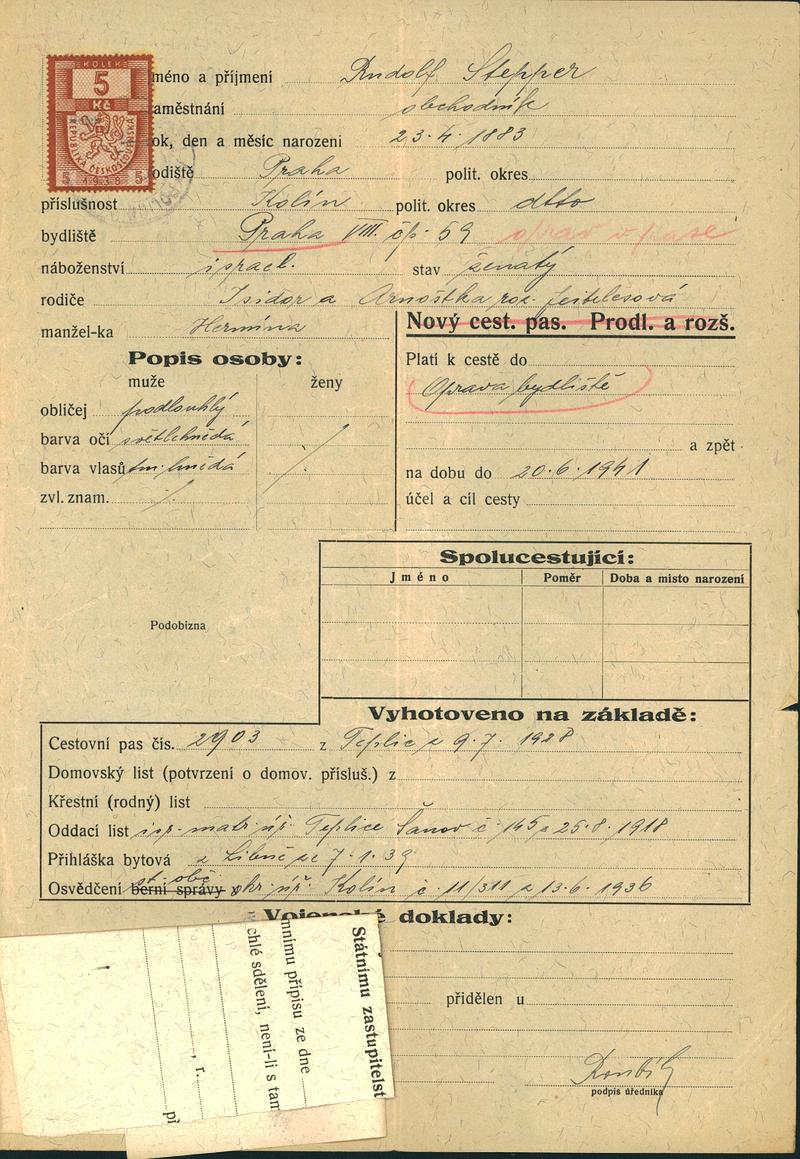 KOLEK
5
Kč
REPUBLIKA ČESKOSLOVENSKÁ
5 1938 5
méno a příjmení Rudolf Stepper
aměstnání obchodník
ok, den a měsíc narození 23.4.1883
odiště Praha polit. okres
příslušnost Kolín polit. okres dtto
bydliště Praha VIII. čp. 59 oprav v pase
náboženství israel. stav ženatý
rodiče Isidor a Arnoštka roz. Jeitelesová
manžel-ka Hermína
Nový cest. pas. Prodl. a rozš.
Popis osoby:
muže ženy
obličej podlouhlý
barva očí světlehnědá
barva vlasů tm. hnědá
zvl. znam.
Platí k cestě do
Oprava bydliště
a zpět
na dobu do 20.6.1941
účel a cíl cesty
Podobizna
Spolucestující:
Jméno Poměr Doba a místo narození
Vyhotoveno na základě:
Cestovní pas čís. 2903 z Teplic z 9.7.1928
Domovský list (potvrzení o domov. přísluš.) z
Křestní (rodný) list
Oddací list isr. matr. úř. Teplice Šanov č. 145 z 25.8.1918
Přihláška bytová z Libně ze 7.1.39
st. obč.
Osvědčení berní správy okr. úř. Kolín č. 11/311 z 13.6.1936
Vojenské doklady:
přidělen u
podpis úředníka
Státnímu zastupitelst
mnímu přípisu ze dne
chlé sdělení, není-li s tam
, r.
př